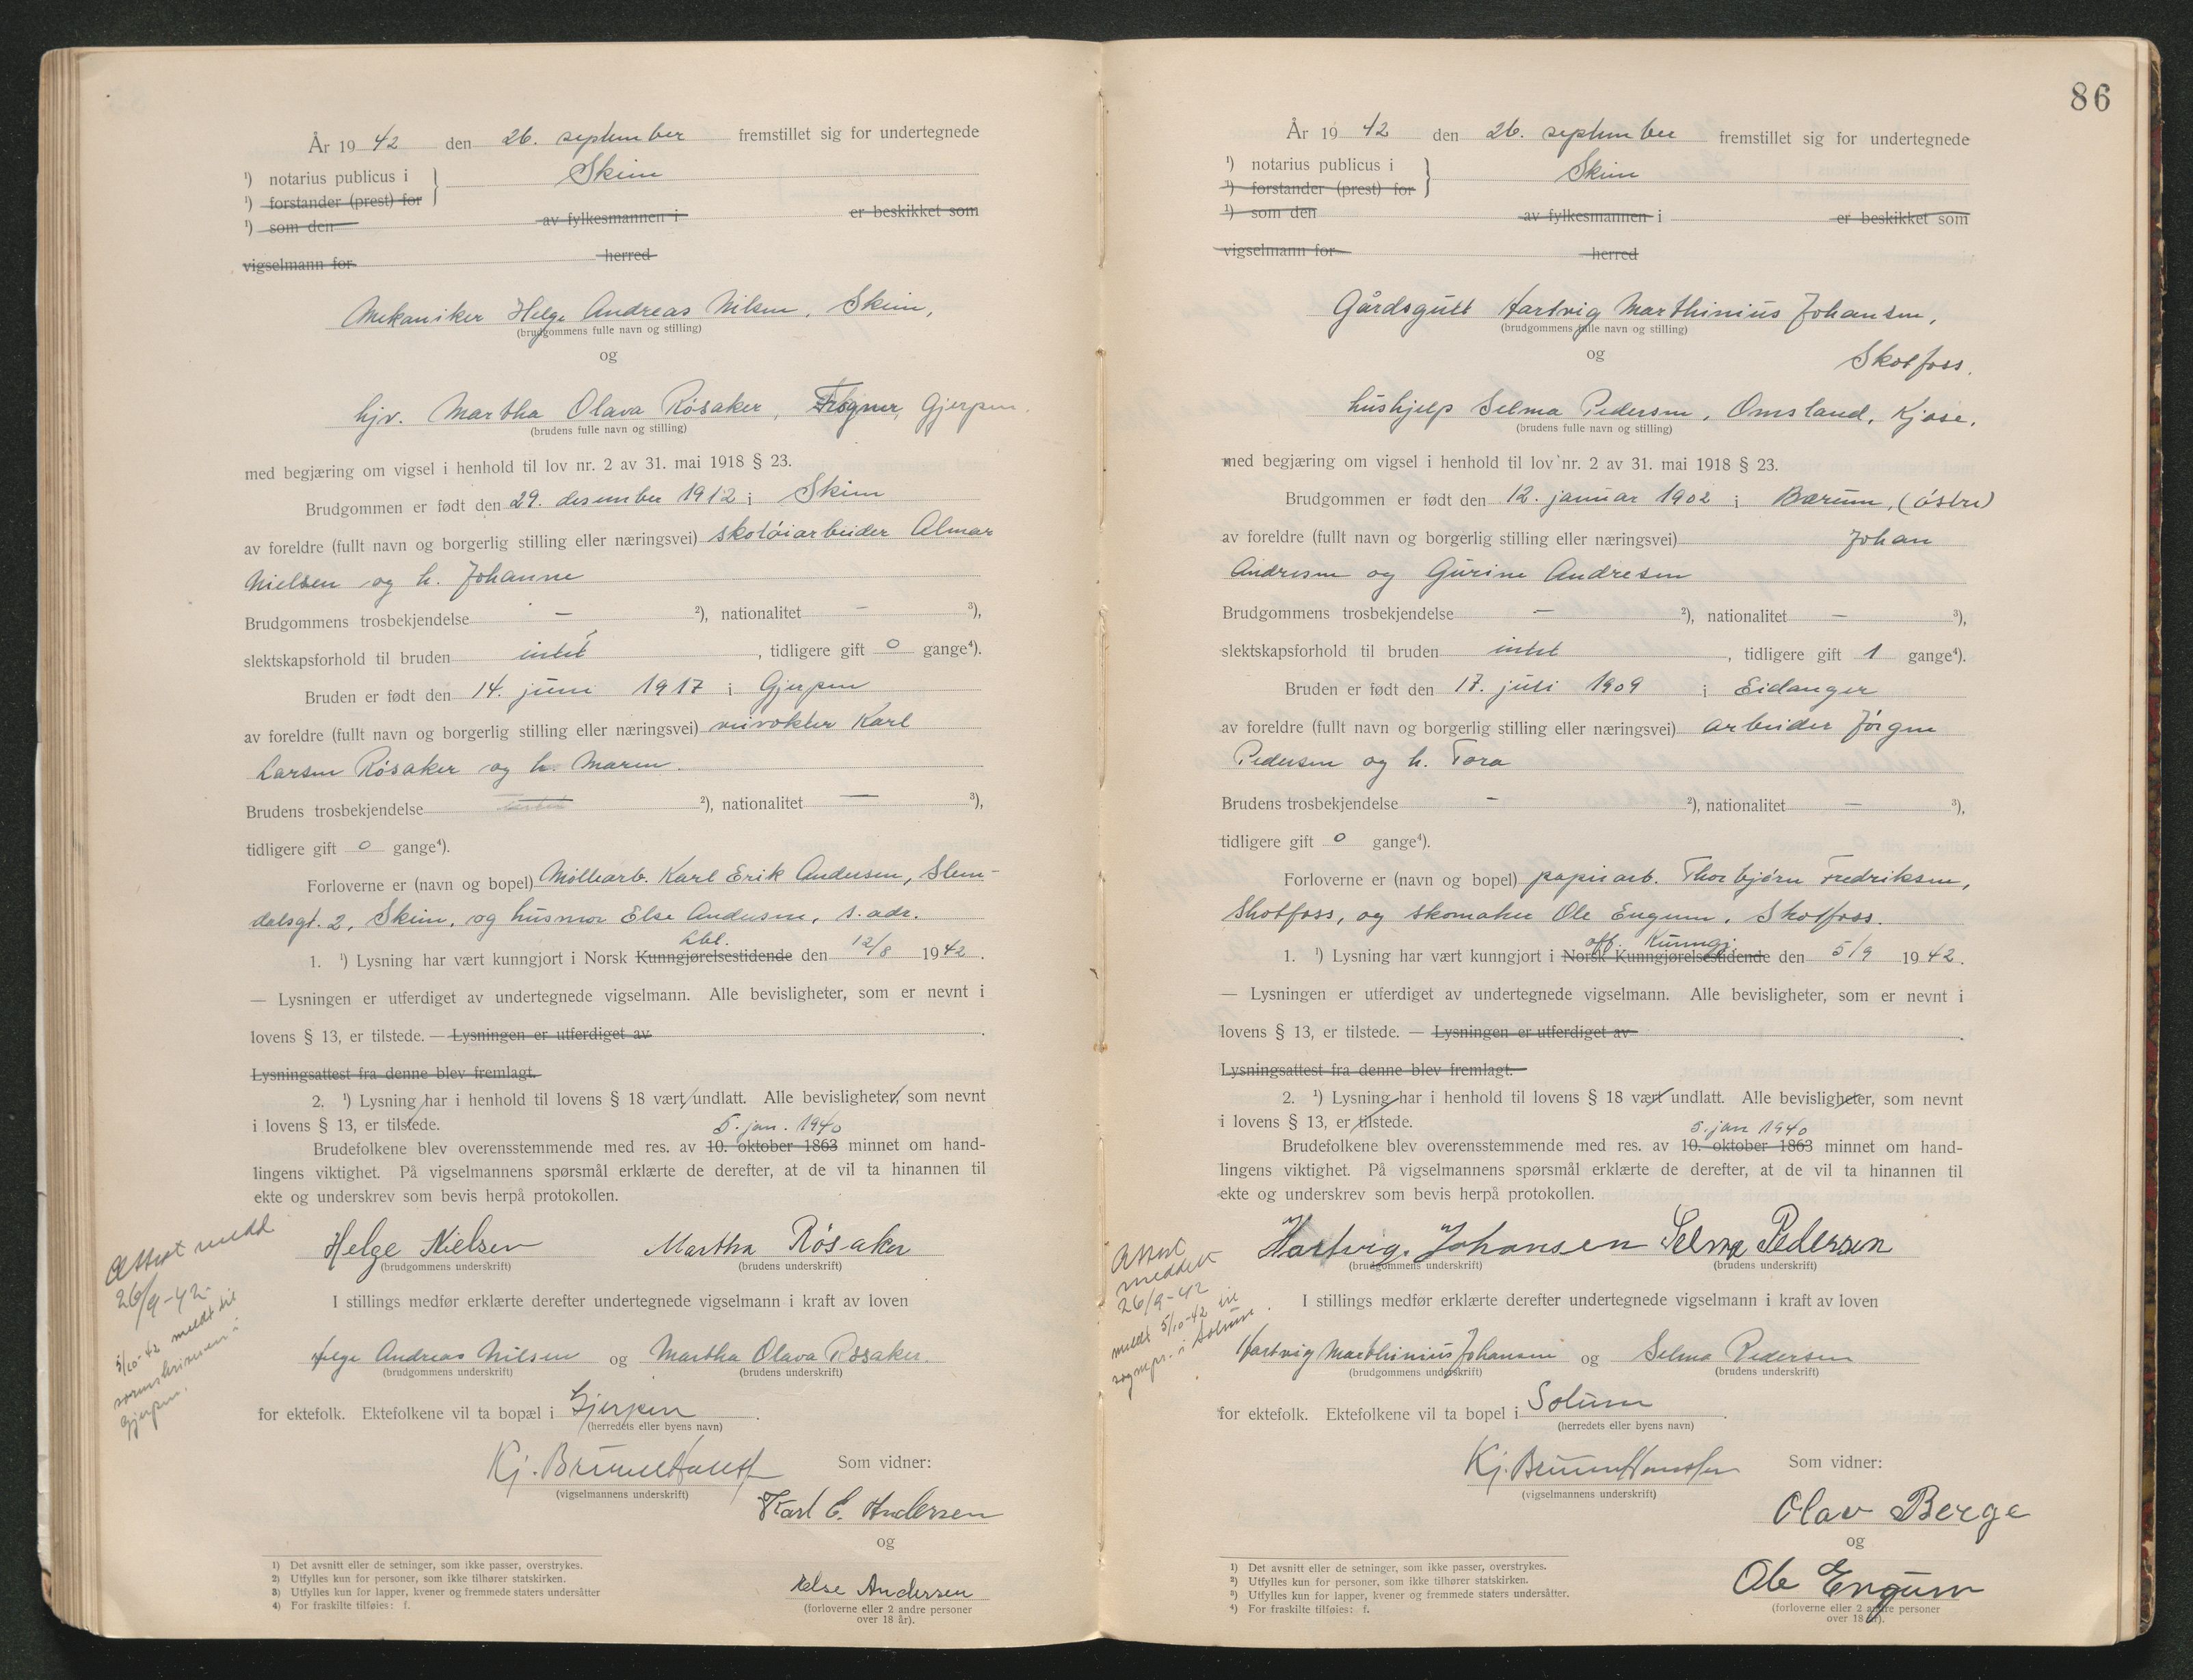 År 19 42 den 26. september fremstillet sig for undertegnede
¹) notarius publicus i } Skien
¹) forstander (prest) for
¹) som den av fylkesmannen i er beskikket som
vigselmann for herred
Mekaniker Helge Andreas Nilsen, Skien,
(brudgommens fulle navn og stilling)
og
hjv. Martha Olava Røsaker, Frogner, Gjerpen.
(brudens fulle navn og stilling)
med begjæring om vigsel i henhold til lov nr. 2 av 31. mai 1918 § 23.
Brudgommen er født den 29. desember 1912 i Skien
av foreldre (fullt navn og borgerlig stilling eller næringsvei) skotøiarbeider Almar
Nielsen og h. Johanne
Brudgommens trosbekjendelse — ²), nationalitet — ³),
slektskapsforhold til bruden intet, tidligere gift 0 gange⁴).
Bruden er født den 14. juni 1917 i Gjerpen
av foreldre (fullt navn og borgerlig stilling eller næringsvei) veivokter Karl
Larsen Røsaker og h. Maren.
Brudens trosbekjendelse ²), nationalitet — ³),
tidligere gift 0 gange⁴).
Forloverne er (navn og bopel) Møllearb. Karl Erik Andersen, Slem-
dalsgt. 2, Skien, og husmor Else Andersen, s. adr.
Lbl.
1. ¹) Lysning har vært kunngjort i Norsk Kunngjørelsestidende den 12/8 1942.
— Lysningen er utferdiget av undertegnede vigselmann. Alle bevisligheter, som er nevnt i
lovens § 13, er tilstede. — Lysningen er utferdiget av
Lysningsattest fra denne blev fremlagt.
2. ¹) Lysning har i henhold til lovens § 18 vært undlatt. Alle bevisligheter, som nevnt
i lovens § 13, er tilstede.
5. jan. 1940
Brudefolkene blev overensstemmende med res. av 10. oktober 1863 minnet om hand-
lingens viktighet. På vigselmannens spørsmål erklærte de derefter, at de vil ta hinannen til
ekte og underskrev som bevis herpå protokollen.
Attest medd
26/9-42
5/10-42 meldt til
sorenskriveren i
Gjerpen.
Helge Nielsen Martha Røsaker
(brudgommens underskrift) (brudens underskrift)
I stillings medfør erklærte derefter undertegnede vigselmann i kraft av loven
Helge Andreas Nilsen og Martha Olava Røsaker.
(brudgommens underskrift) (brudens underskrift)
for ektefolk. Ektefolkene vil ta bopæl i Gjerpen.
(herredets eller byens navn)
Kj. Bruun Hanssen Som vidner:
(vigselmannens underskrift)
Karl E. Andersen
og
Else Andersen
(forloverne eller 2 andre personer
over 18 år).
1) Det avsnitt eller de setninger, som ikke passer, overstrykes.
2) Utfylles kun for personer, som ikke tilhører statskirken.
3) Utfylles kun for lapper, kvener og fremmede staters undersåtter
4) For fraskilte tilføies: f.
86
År 19 42 den 26. september fremstillet sig for undertegnede
¹) notarius publicus i } Skien
¹) forstander (prest) for
¹) som den av fylkesmannen i er beskikket som
vigselmann for herred
Gårdsgutt Hartvig Marthinius Johansen,
(brudgommens fulle navn og stilling)
og Skotfoss.
hushjelp Selma Pedersen, Omsland, Kjose.
(brudens fulle navn og stilling)
med begjæring om vigsel i henhold til lov nr. 2 av 31. mai 1918 § 23.
Brudgommen er født den 12. januar 1902 i Bærum, (østre)
av foreldre (fullt navn og borgerlig stilling eller næringsvei) Johan
Andresen og Gurine Andresen
Brudgommens trosbekjendelse — ²), nationalitet — ³),
slektskapsforhold til bruden intet, tidligere gift 1 gange⁴).
Bruden er født den 17. juli 1909 i Eidanger
av foreldre (fullt navn og borgerlig stilling eller næringsvei) arbeider Jørgen
Pedersen og h. Tora
Brudens trosbekjendelse - ²), nationalitet — ³),
tidligere gift 0 gange⁴).
Forloverne er (navn og bopel) papirarb. Thorbjørn Fredriksen,
Skotfoss, og skomaker Ole Engum, Skotfoss.
off. Kunngj.
1. ¹) Lysning har vært kunngjort i Norsk Kunngjørelsestidende den 5/9 1942.
— Lysningen er utferdiget av undertegnede vigselmann. Alle bevisligheter, som er nevnt i
lovens § 13, er tilstede. — Lysningen er utferdiget av
Lysningsattest fra denne blev fremlagt.
2. ¹) Lysning har i henhold til lovens § 18 vært undlatt. Alle bevisligheter, som nevnt
i lovens § 13, er tilstede.
5. jan 1940
Brudefolkene blev overensstemmende med res. av 10. oktober 1863 minnet om hand-
lingens viktighet. På vigselmannens spørsmål erklærte de derefter, at de vil ta hinannen til
ekte og underskrev som bevis herpå protokollen.
Attest
meddelt
26/9-42
meldt 5/10-42 til
sognepr. i Solum.
Hartvig. Johansen Selma Pedersen
(brudgommens underskrift) (brudens underskrift)
I stillings medfør erklærte derefter undertegnede vigselmann i kraft av loven
Hartvig Marthinius Johansen og Selma Pedersen
(brudgommens underskrift) (brudens underskrift)
for ektefolk. Ektefolkene vil ta bopel i Solum.
(herredets eller byens navn)
Kj. Bruun Hanssen Som vidner:
(vigselmannens underskrift)
Olav Berge
og
Ole Engum
(forloverne eller 2 andre personer
over 18 år).
¹) Det avsnitt eller de setninger, som ikke passer, overstrykes.
²) Utfylles kun for personer, som ikke tilhører statskirken.
³) Utfylles kun for lapper, kvener og fremmede staters undersåtter.
⁴) For fraskilte tilføies: f.